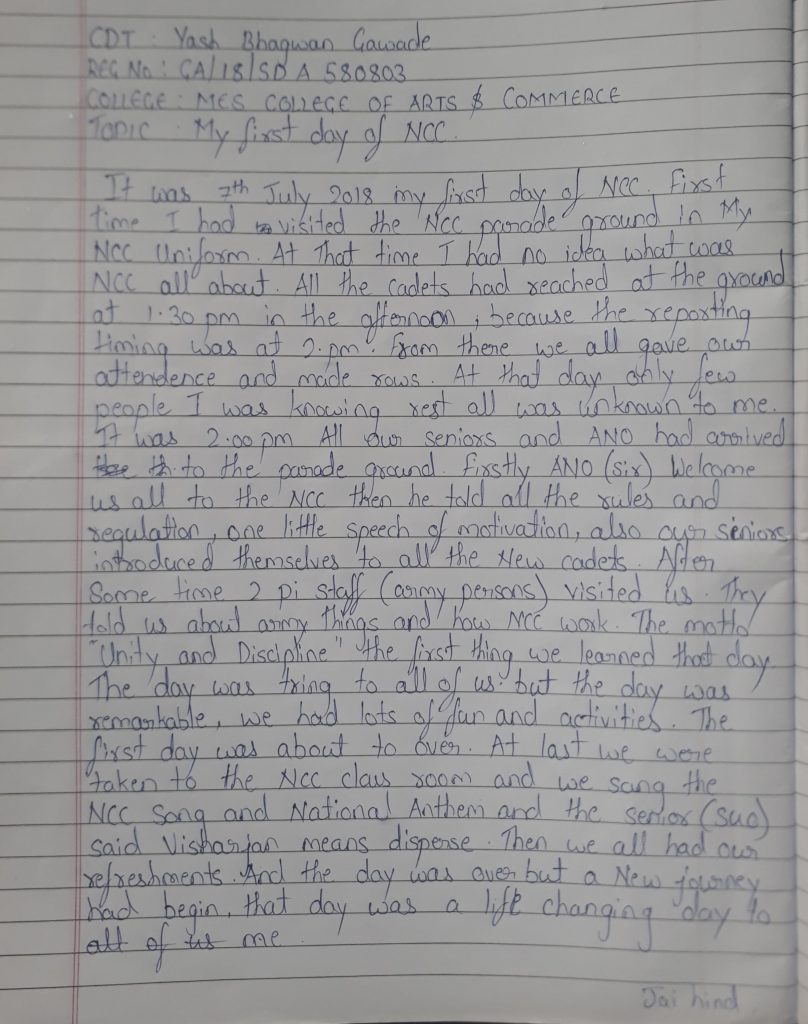 CDT : Yash Bhagwan Gawade
REG No : GA/18/SD A 580803
COLLEGE : MES COLLEGE OF ARTS & COMMERCE
TOPIC : My first day of NCC.
It was 7th July 2018 my first day of NCC. First
time I had visited the NCC parade ground in My
NCC Uniform. At That time I had no idea what was
NCC all about. All the cadets had reached at the ground
at 1.30 pm in the afternoon, because the reporting
timing was at 2.pm. From there we all gave our
attendence and made rows. At that day only few
people I was knowing rest all was unknown to me.
It was 2.00 pm All our seniors and ANO had arrived
to the parade ground. Firstly ANO (sir) Welcome
us all to the NCC then he told all the rules and
regulation, one little speech of motivation, also our seniors
introduced themselves to all the New cadets. After
Some time 2 pi staff (army persons) visited us. They
told us about army things and how NCC work. The motto
"Unity and Discipline" the first thing we learned that day
The day was tring to all of us but the day was
remarkable, we had lots of fun and activities. The
first day was about to over. At last we were
taken to the NCC class room and we sang the
NCC Song and National Anthem and the senior (suo)
said Visharjan means dispense. Then we all had our
refreshments. And the day was over but a New journey
had begin, that day was a life changing day to
all of us me
Jai hind